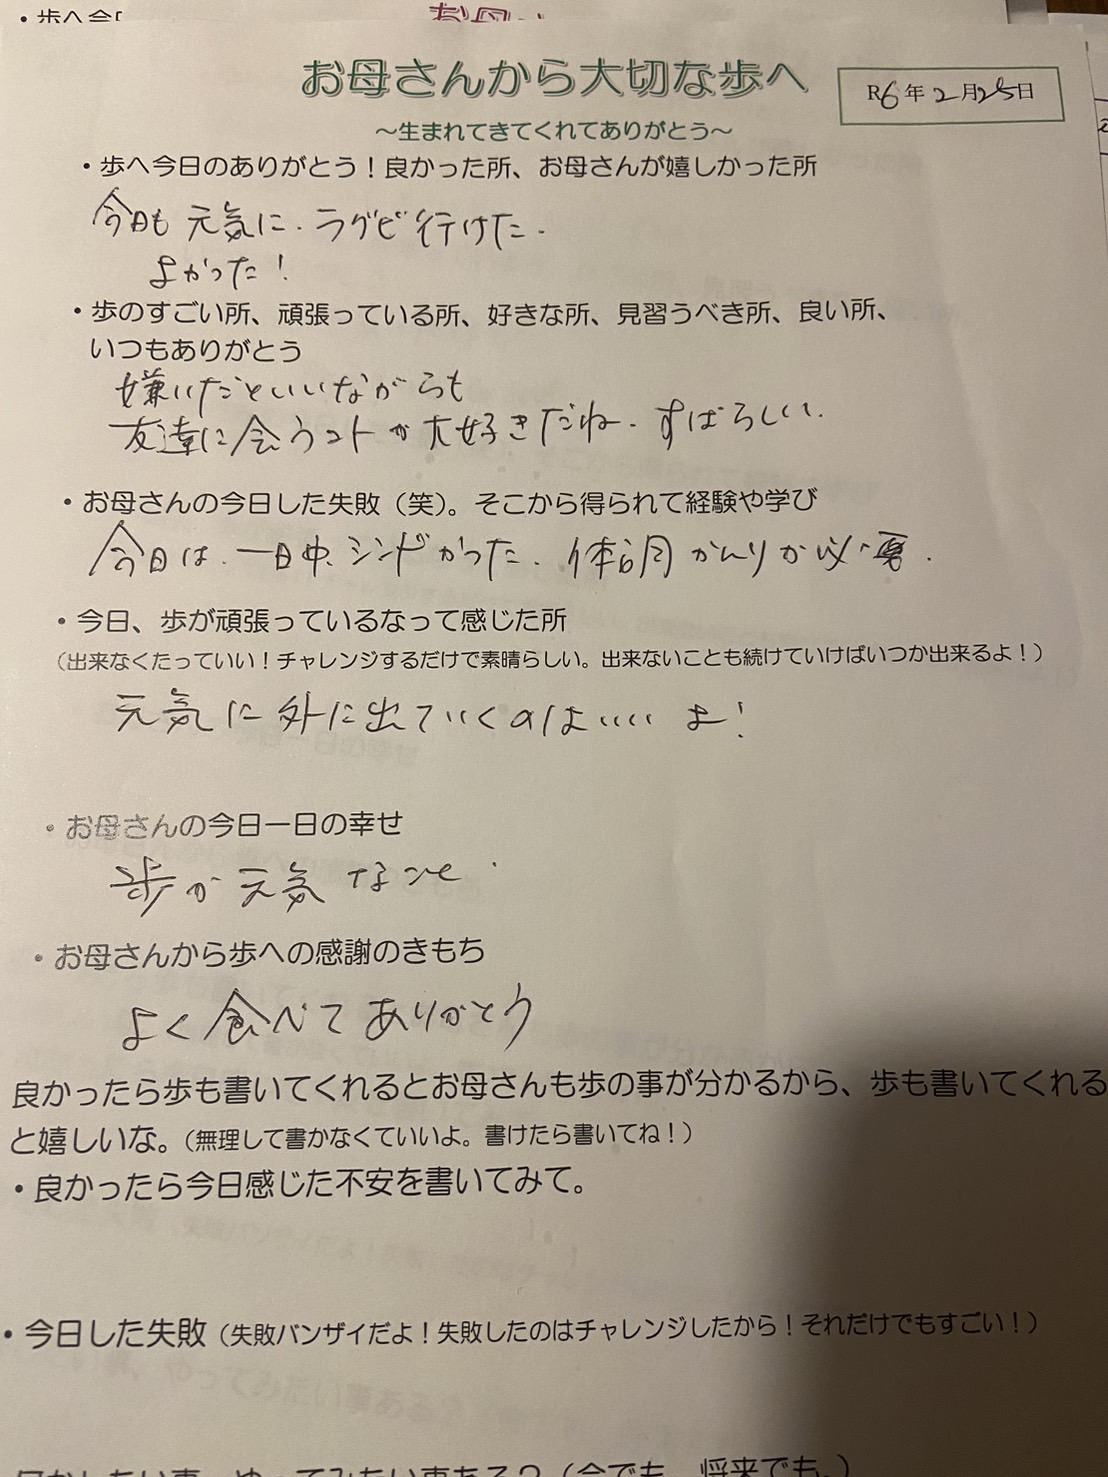 ・歩へ今
お母
お母さんから大切な歩へ
R6年2月25日
～生まれてきてくれてありがとう～
・歩へ今日のありがとう！良かった所、お母さんが嬉しかった所
今日も元気に.ラグビ行けた.
よかった！
・歩のすごい所、頑張っている所、好きな所、見習うべき所、良い所、
いつもありがとう
嫌いだといいながらも
友達に会うコトが大好きだね.すばらしい.
・お母さんの今日した失敗（笑）。そこから得られて経験や学び
今日は.一日中、シンドかった.体調かんりが必要.
・今日、歩が頑張っているなって感じた所
（出来なくたっていい！チャレンジするだけで素晴らしい。出来ないことも続けていけばいつか出来るよ！）
元気に外に出ていくのはいいよ！
・お母さんの今日一日の幸せ
歩が元気なこと.
・お母さんから歩への感謝のきもち
よく食べてありがとう
良かったら歩も書いてくれるとお母さんも歩の事が分かるから、歩も書いてくれる
と嬉しいな。（無理して書かなくていいよ。書けたら書いてね！）
・良かったら今日感じた不安を書いてみて。
・今日した失敗（失敗バンザイだよ！失敗したのはチャレンジしたから！それだけでもすごい！）
何かしたい事、やってみたい事ある？（今でも、将来でも。）